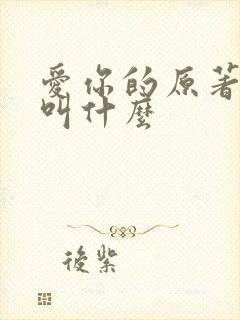 愛你的原著
叫什麼
後紫